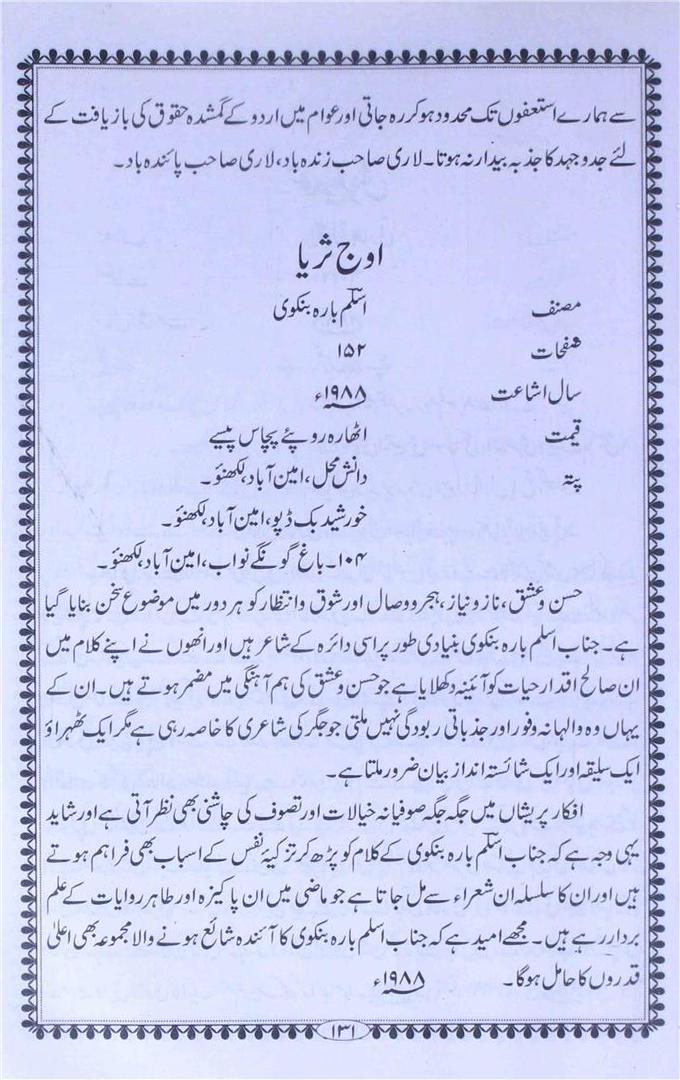 سے ہمارے استعفوں تک محدود ہو کر رہ جاتی اور عوام میں اردو کے گمشدہ حقوق کی بازیافت کے
لئے جدوجہد کا جذبہ بیدار نہ ہوتا۔ لاری صاحب زندہ باد، لاری صاحب پائندہ باد۔
اوج ثریا
مصنف اسلم بارہ بنکوی
صفحات ۱۵۲
سال اشاعت ۱۹۸۸ء
قیمت اٹھارہ روپئے پچاس پیسے
پتہ دانش محل، امین آباد، لکھنؤ۔
خورشید بک ڈپو، امین آباد، لکھنؤ۔
۱۰۴۔ باغ گونگے نواب، امین آباد، لکھنؤ۔
حسن وعشق، ناز و نیاز، ہجر ووصال اور شوق وانتظار کو ہر دور میں موضوع سخن بنایا گیا
ہے۔ جناب اسلم بارہ بنکوی بنیادی طور پر اسی دائرہ کے شاعر ہیں اور انھوں نے اپنے کلام میں
ان صالح اقدار حیات کو آئینہ دکھلایا ہے جو حسن وعشق کی ہم آہنگی میں مضمر ہوتے ہیں۔ ان کے
یہاں وہ والہانہ وفور اور جذباتی ربودگی نہیں ملتی جو جگر کی شاعری کا خاصہ رہی ہے مگر ایک ٹھہراؤ
ایک سلیقہ اور ایک شائستہ انداز بیان ضرور ملتا ہے۔
افکار پریشاں میں جگہ جگہ صوفیانہ خیالات اور تصوف کی چاشنی بھی نظر آتی ہے اور شاید
یہی وجہ ہے کہ جناب اسلم بارہ بنکوی کے کلام کو پڑھ کر تزکیہ نفس کے اسباب بھی فراہم ہوتے
ہیں اور ان کا سلسلہ ان شعراء سے مل جاتا ہے جو ماضی میں ان پاکیزہ اور طاہر روایات کے علم
بردار رہے ہیں۔ مجھے امید ہے کہ جناب اسلم بارہ بنکوی کا آئندہ شائع ہونے والا مجموعہ بھی اعلیٰ
قدروں کا حامل ہوگا۔ ۱۹۸۸ء
۱۳۱